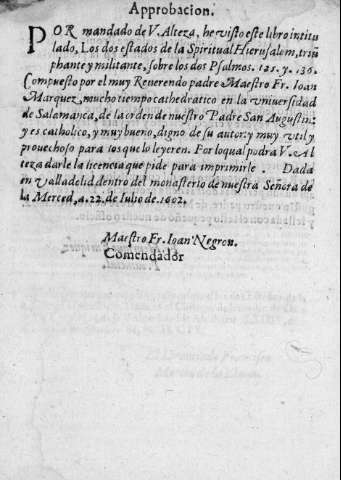 Approbacion.
POR mandado de V. Alteza, he visto este libro intitu
lado, Los dos estados de la Spiritual Hierusalem, triũ
phante y militante, sobre los dos Psalmos. 125. y. 136.
Compuesto por el muy Reuerendo padre Maestro Fr. Ioan
Marquez, mucho tiempo cathedratico en la vniuersidad
de Salamanca, de la orden de nuestro Padre San Augustin:
y es catholico, y muy bueno, digno de su autor: y muy vtil y
prouechoso para los que lo leyeren. Por lo qual podra V. Al
teza darle la licencia que pide para imprimirle. Dada
en Valladolid dentro del monasterio de nuestra Señora de
la Merced, a. 22. de Iulio de. 1602.
Maestro Fr. Ioan Negron.
Comendador